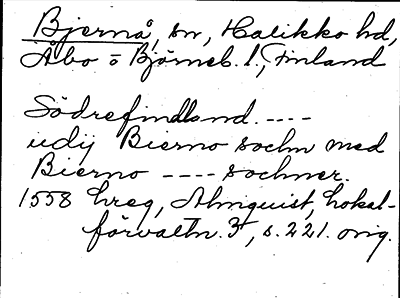 Bjernå, sn, Halikko hd,
Åbo o Björneb. l., Finland
Södrefindland. ----
udij Bierno sochn med
Bierno ---- sochner.
1558 hreg, Almquist, Lokal-
förvaltn. 3, s. 221. orig.